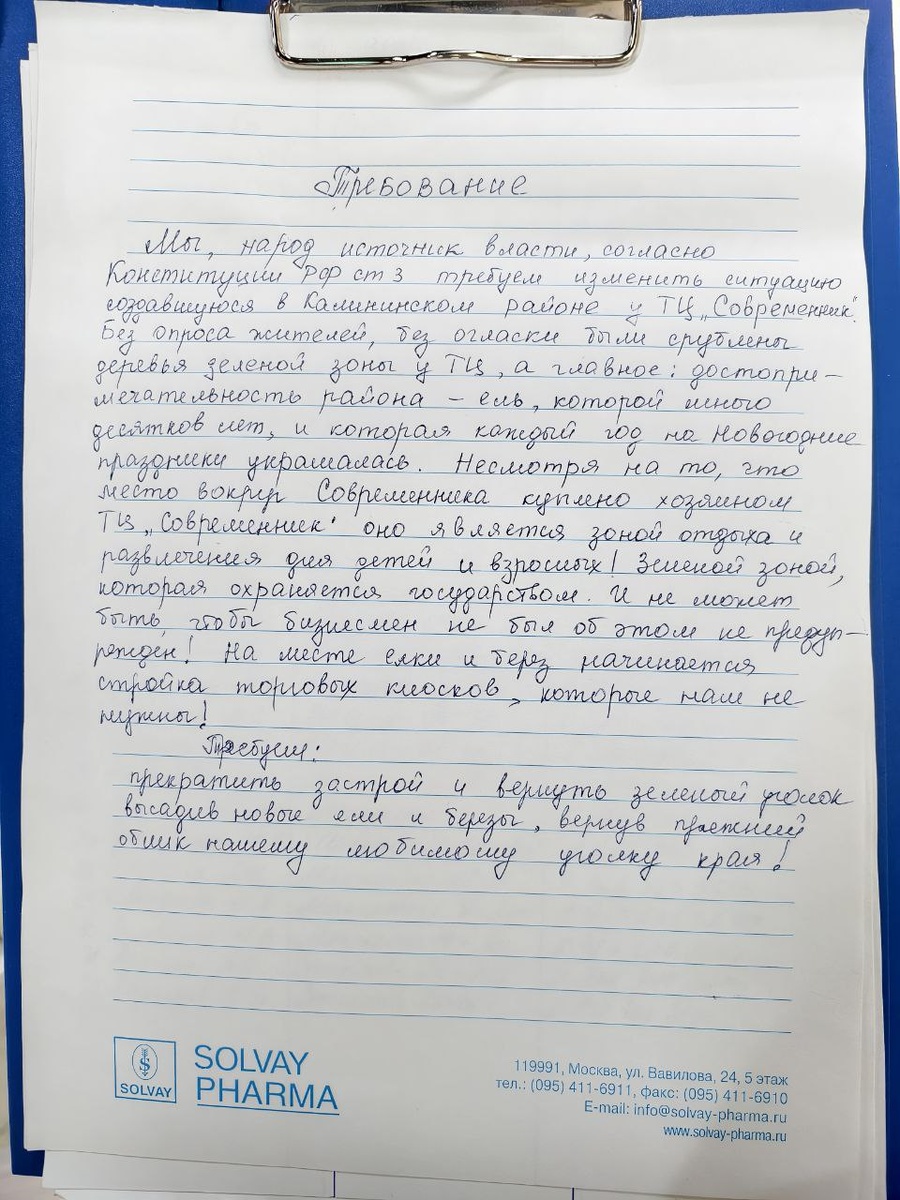 Требование
Мы, народ источник власти, согласно
Конституции РФ ст 3 требуем изменить ситуацию
создавшуюся в Калининском районе у ТЦ „Современник".
Без опроса жителей, без огласки были срублены
деревья зеленой зоны у ТЦ, а главное: достопри-
мечательность района - ель, которой много
десятков лет, и которая каждый год на Новогодние
праздники украшалась. Несмотря на то, что
место вокруг Современника куплено хозяином
ТЦ „Современник" оно является зоной отдыха и
развлечения для детей и взрослых! Зеленой зоной,
которая охраняется государством. И не может
быть, чтобы бизнесмен не был об этом не предуп-
режден! На месте елки и берез начинается
стройка торговых киосков, которые нам не
нужны!
Требуем:
прекратить застрой и вернуть зеленый уголок
высадив новые ели и березы, вернув прежний
облик нашему любимому уголку края!
SOLVAY
SOLVAY
PHARMA
119991, Москва, ул. Вавилова, 24, 5 этаж
тел.: (095) 411-6911, факс: (095) 411-6910
E-mail: info@solvay-pharma.ru
www.solvay-pharma.ru